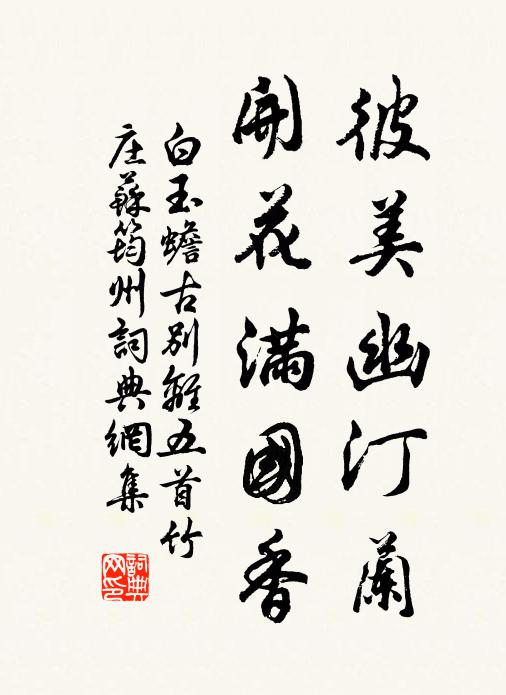 彼美幽汀蘭
開花滿國香
白玉蟾古别離五首竹
庄蘇筠州詞典網集
詞典网印